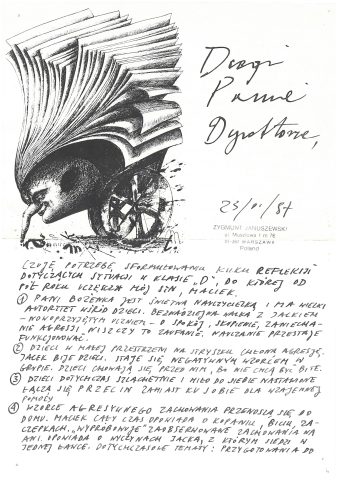 Drogi
Panie
Dyrektorze,
23/01/87
ZYGMUNT JANUSZEWSKI
Warszawa
Poland
CZUJĘ POTRZEBĘ SFORMUŁOWANIA KILKU REFLEKSJI
DOTYCZĄCYCH SYTUACJI W KLASIE „D”, DO KTÓREJ OD
PÓŁ ROKU UCZĘSZCZA MÓJ SYN, MACIEK.
① PANI BOŻENKA JEST ŚWIETNĄ NAUCZYCIELKĄ I MA WIELKI
AUTORTET WŚRÓD DZIECI. BEZNADZIEJNA WALKA Z JACKIEM
– NOWOPRZYJĘTYM UCZNIEM – O SPOKÓJ, SKUPIENIE, ZANIECHA-
NIE AGRESJI, NISZCZY TO ZAUFANIE, NAUCZANIE PRZESTAJE
FUNKCJONOWAĆ.
② DZIECI W MAŁEJ PRZESTRZENI NA STRYSZKU CHŁONĄ AGRESJĘ,
JACEK BIJE DZIECI. STAJE SIĘ NEGATYWNYM WZORCEM W
GRUPIE. DZIECI CHOWAJĄ SIĘ PRZED NIM, BO NIE CHCĄ BYĆ BITE.
③ DZIECI DOTYCHCZAS SZLACHETNIE I MIŁO DO SIEBIE NASTAWIONE
ŁĄCZĄ SIĘ PRZECIW ZAMIAST KU SOBIE DLA WZAJEMNEJ
POMOCY
④ WZORCE AGRESYWNEGO ZACHOWANIA PRZENOSZĄ SIĘ DO
DOMU. MACIEK CAŁY CZAS OPOWIADA O KOPANIU, BICIU, ZA-
CZEPKACH. „WYPRÓBOWUJE” ZAOBSERWOWANE ZACHOWANIA NA
ANI. OPOWIADA O WYCZYNACH JACKA, Z KTÓRYM SIEDZI W
JEDNEJ ŁAWCE. DOTYCHCZASOWE TEMATY: PRZYGOTOWANIA DO